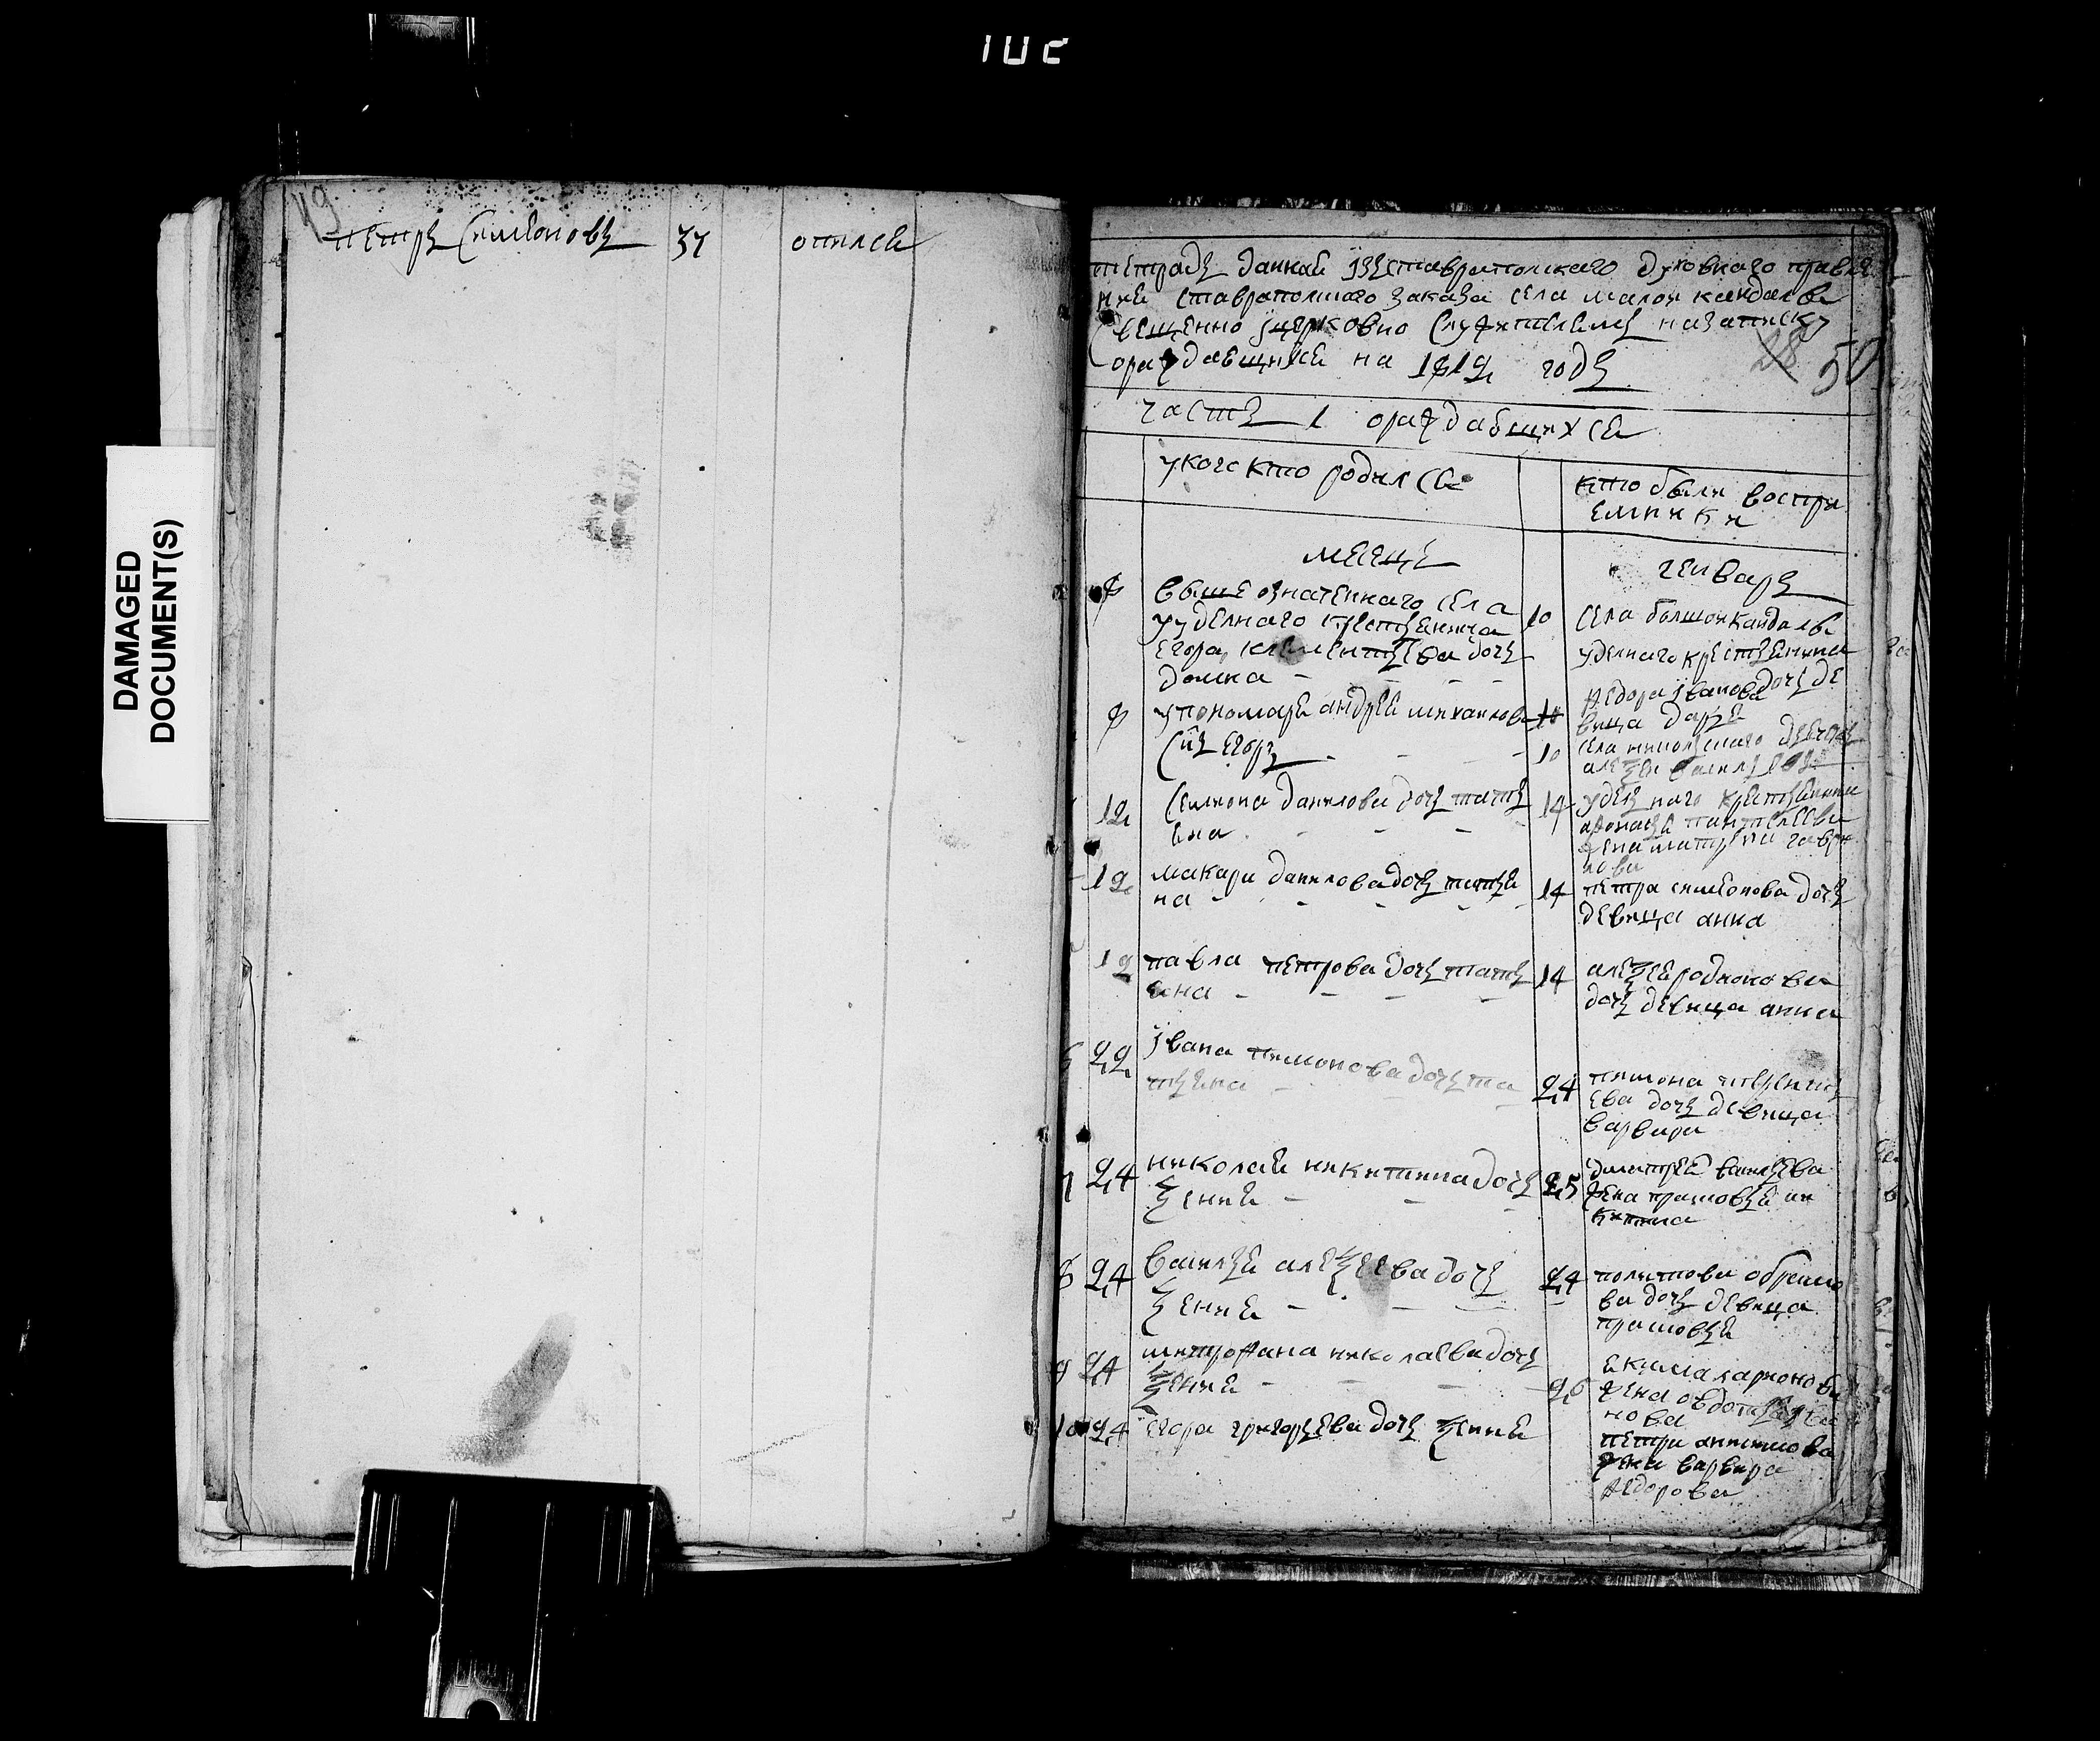 1UC
DAMAGED
DOCUMENT(S)
49
петръ Симеоновъ 37 опился
тетрадь данная изъставропольскаго духовнаго правле
ния ставрополскаго заказа села малой кандалы
священно ицерковно служителямъ назаписку
ораждавшихся на 1812 годъ
28 50
часть 1 ораждавшихся
укого кто родился
кто были воспри
емники
месяцъ генварь
8 выше означеннаго села
уудельнаго крестьянина
егора клементьева дочь
домна
10 села большой кандалы
удельнаго крестьянина
федора иванова дочь де
вица дарья
8 упономаря андрея михайлова
сынъ егоръ
10 села никольскаго
алексей
12 Семиона данилова дочь тать
яна
14 удельнаго крестьянина
афонасья пантелеева
жена матрена гаври
лова
12 макара данилова дочь татья
на
14 петра симеонова дочь
девица анна
12 павла петрова дочь тать
яна
14 алексея родионова
дочь девица анна
6 22 ивана пимонова дочь та
тьяна
24 пимона
ева дочь девица
варвара
7 24 николая никитина дочь
ксения
25 дмитрея васильева
жена прасковья ни
китина
8 24 василья алексеева дочь
ксения
24
ва дочь девица
прасковья
9 24 митрофана николаева дочь
ксения
26 екима ларионова
жена овдотья
нова
10 24 егора григорьева дочь ксения
петра
жена варвара
федорова